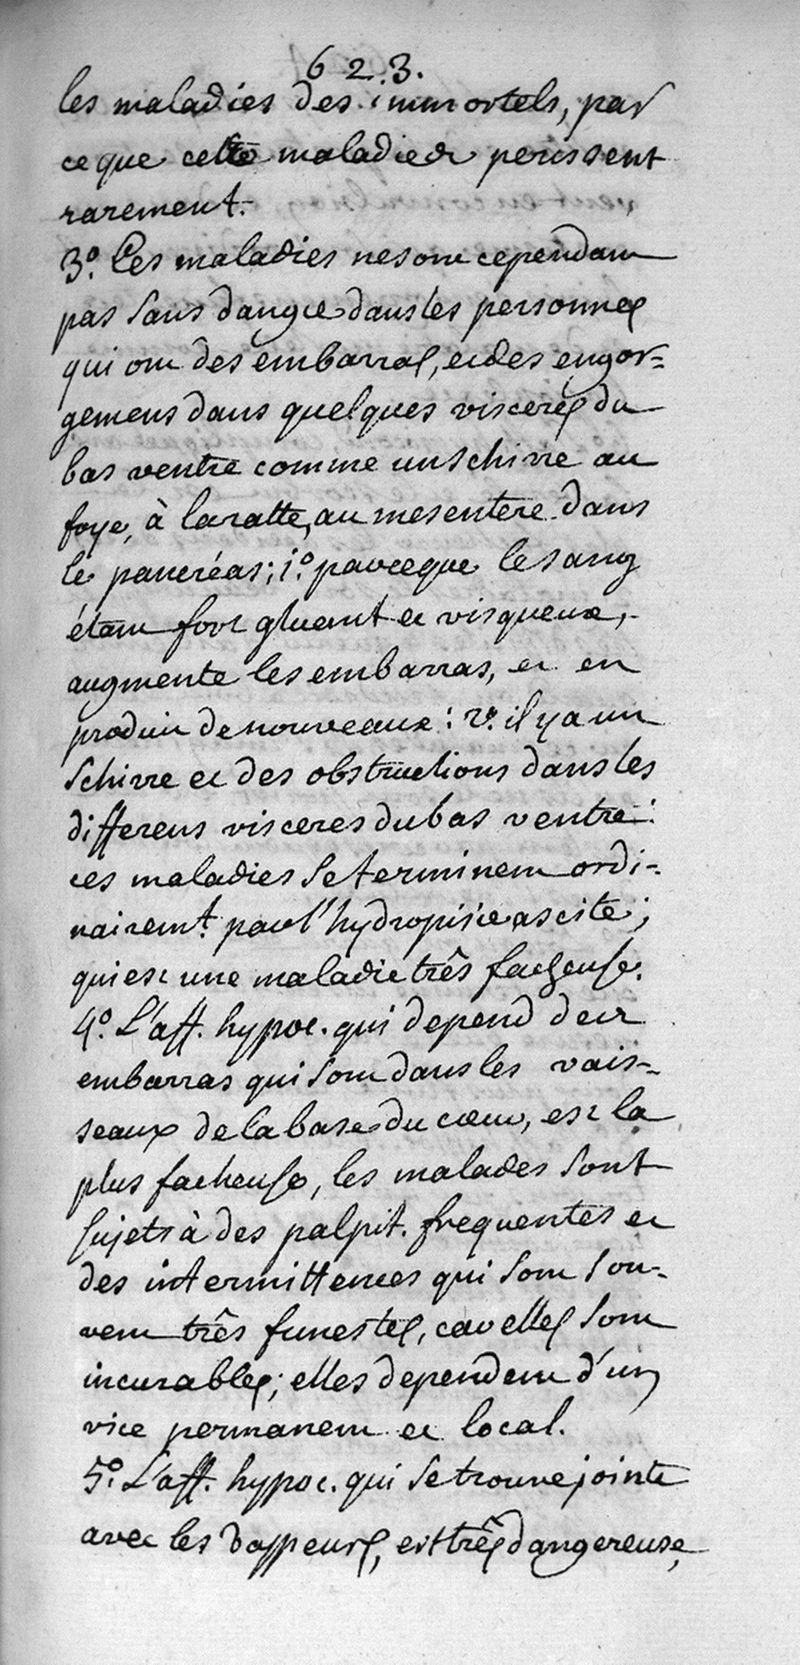 623.
les maladies des immortels, par
ce que cette maladie perissent
rarement.
3.° Les maladies ne sont cependant
pas sans danger dans les personnes
qui ont des embarras, et des engor=
gemens dans quelques visceres du
bas ventre comme un schirre au
foye, à la ratte, au mesentere dans
le pancréas; 1.° parceque le sang
étant fort gluant et visqueux,
augmente les embarras, et en
produit de nouveaux: 2.° il y a un
schirre et des obstructions dans les
differens visceres du bas ventre:
ces maladies se terminent ordi-
nairemt. par l'hydropisie ascite;
qui est une maladie très facheuse.
4.° L'aff. hypoc. qui depend des
embarras qui sont dans les vais-
seaux de la base du cœur, est la
plus facheuse, les malades sont
sujets à des palpit. frequentes et
des intermittences qui sont sou-
vent très funestes, car elles sont
incurables; elles dependent d'un
vice permanent et local.
5.° L'aff. hypoc. qui se trouve jointe
avec les vappeurs, est très dangereuse,